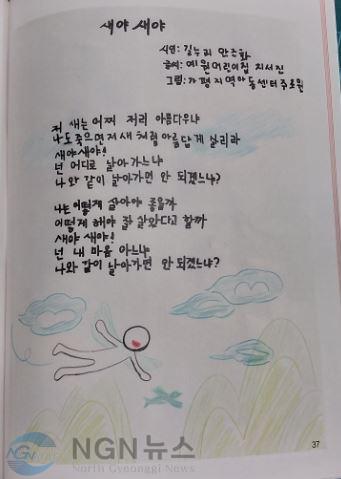 새야 새야
시연: 길누리 안춘화
글씨: 예원어린이집 지서진
그림: 가평지역아동센터 주로원
저 새는 어찌 저리 아름다우냐
나도 죽으면 저 새처럼 아름답게 살리라
새야 새야!
넌 어디로 날아가느냐
나와 같이 날아가면 안 되겠느냐?
나는 어떻게 살아야 좋을까
어떻게 해야 잘 살았다고 할까
새야 새야!
넌 내 마음 아느냐
나와 같이 날아가면 안 되겠느냐?
37
NGN뉴스
North Gyeonggi News